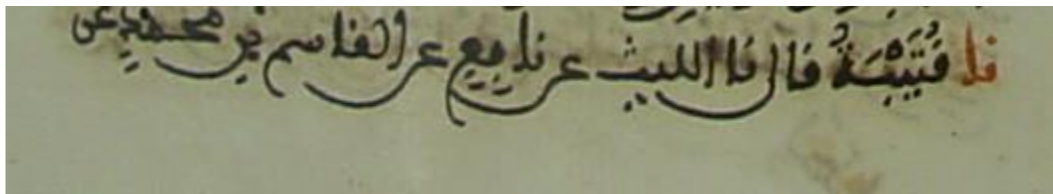 نا قُتَيْبَةُ قال نا الليث عن نافِعٍ عن القاسم بن محمدٍ عن